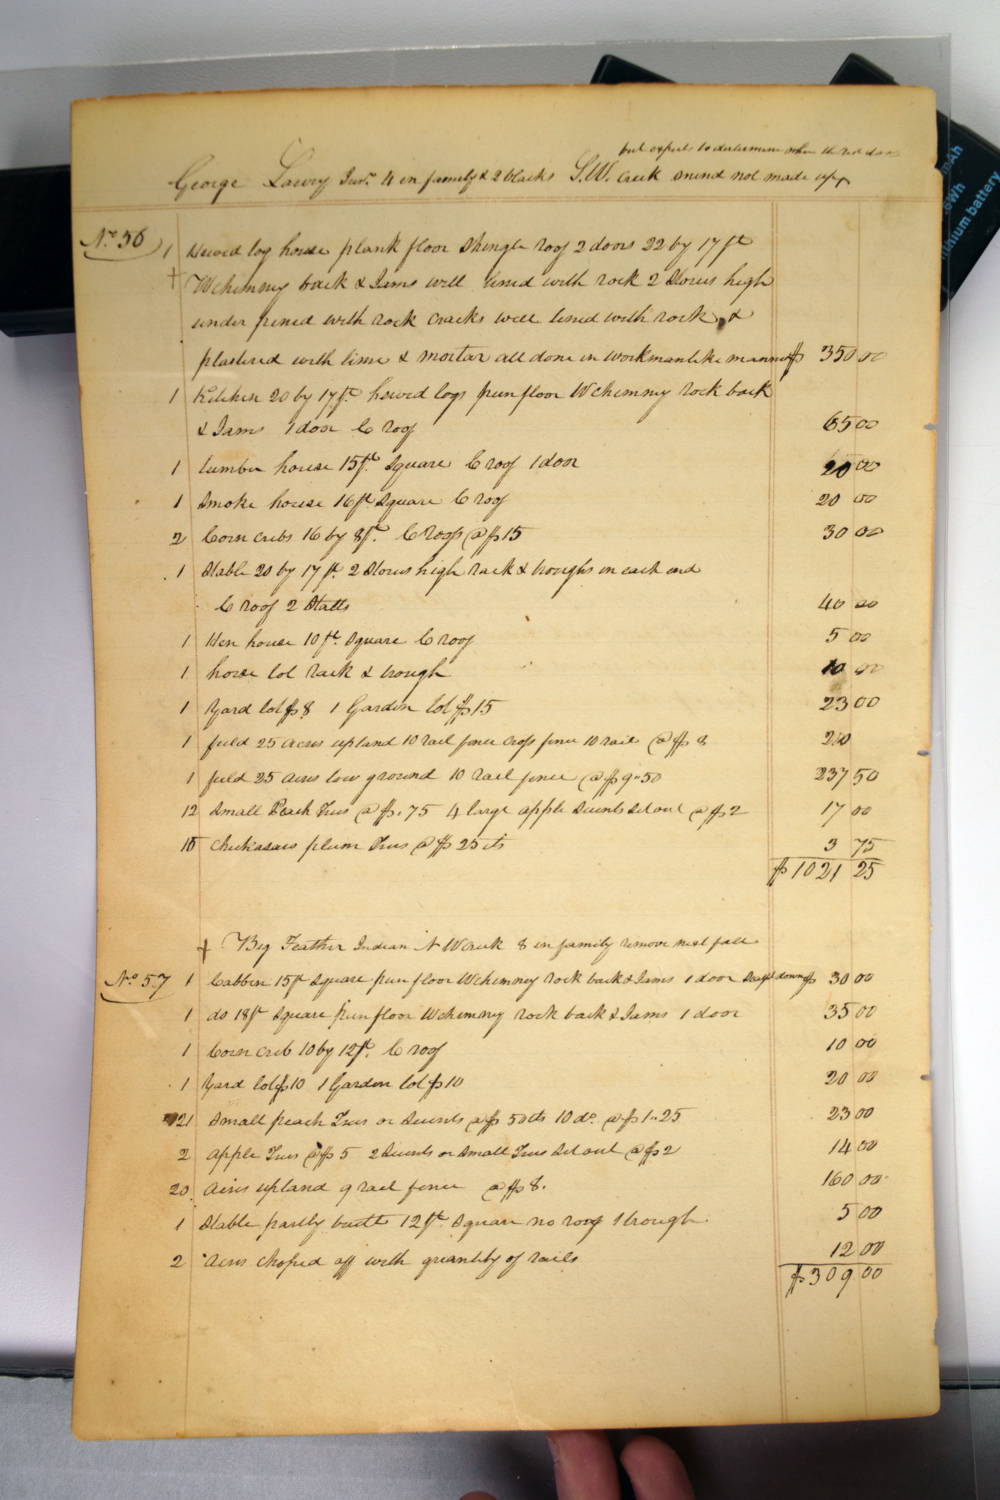 but expect to determine when the red does
George Lowry Junr. 4 in family & 2 blacks S.W. Creek mind not made up
No. 56
1 Hewed log house plank floor Shingle roof 2 doors 22 by 17 ft
W chimney back & Jams well lined with rock 2 Stories high
under pined with rock cracks well lined with rock &
plastered with lime & mortar all done in workmanlike manner $ 350 00
1 Kitchen 20 by 17 ft. hewed logs pun floor W chimney rock back
& Jams 1 door C roof 65 00
1 lumber house 15 ft. Square C roof 1 door 20 00
1 Smoke house 16 ft Square C roof 20 00
2 Corn cribs 16 by 8 ft. C roofs @ $ 15 30 00
1 Stable 20 by 17 ft. 2 Stories high rack & troughs in each end
C roof 2 Stalls 40 00
1 Hen house 10 ft. Square C roof 5 00
1 horse lot rack & trough 10 00
1 Yard lot $ 8 1 Garden lot $ 15 23 00
1 field 25 acres upland 10 rail fence cross fence 10 rails @ $ 8 200
1 field 25 acres low ground 10 rail fence @ $ 9.50 237 50
12 Small Peach Trees @ $ .75 4 large apple Scients Set out @ $ 2 17 00
15 Chickasaw plum Trees @ $ 25 cts 3 75
$ 1021 25
Big Feather Indian N W Creek 8 in family remove next fall
No. 57
1 Cabbin 15 ft Square pun floor W chimney rock back & Jams 1 door down $ 30 00
1 do 18 ft Square pun floor W chimney rock back & Jams 1 door 35 00
1 Corn crib 10 by 12 ft. C roof 10 00
1 Yard lot $ 10 1 Garden lot $ 10 20 00
21 Small peach Trees or Scients @ $ 50 cts 10 do. @ $ 1..25 23 00
2 apple Trees @ $ 5 2 Scients or Small Trees Set out @ $ 2 14 00
20 Acres upland 9 rail fence @ $ 8. 160 00
1 Stable partly built 12 ft Square no roof 1 trough 5 00
2 Acres choped off with quantity of rails 12 00
$ 309 00
mAh
Wh
ithium battery